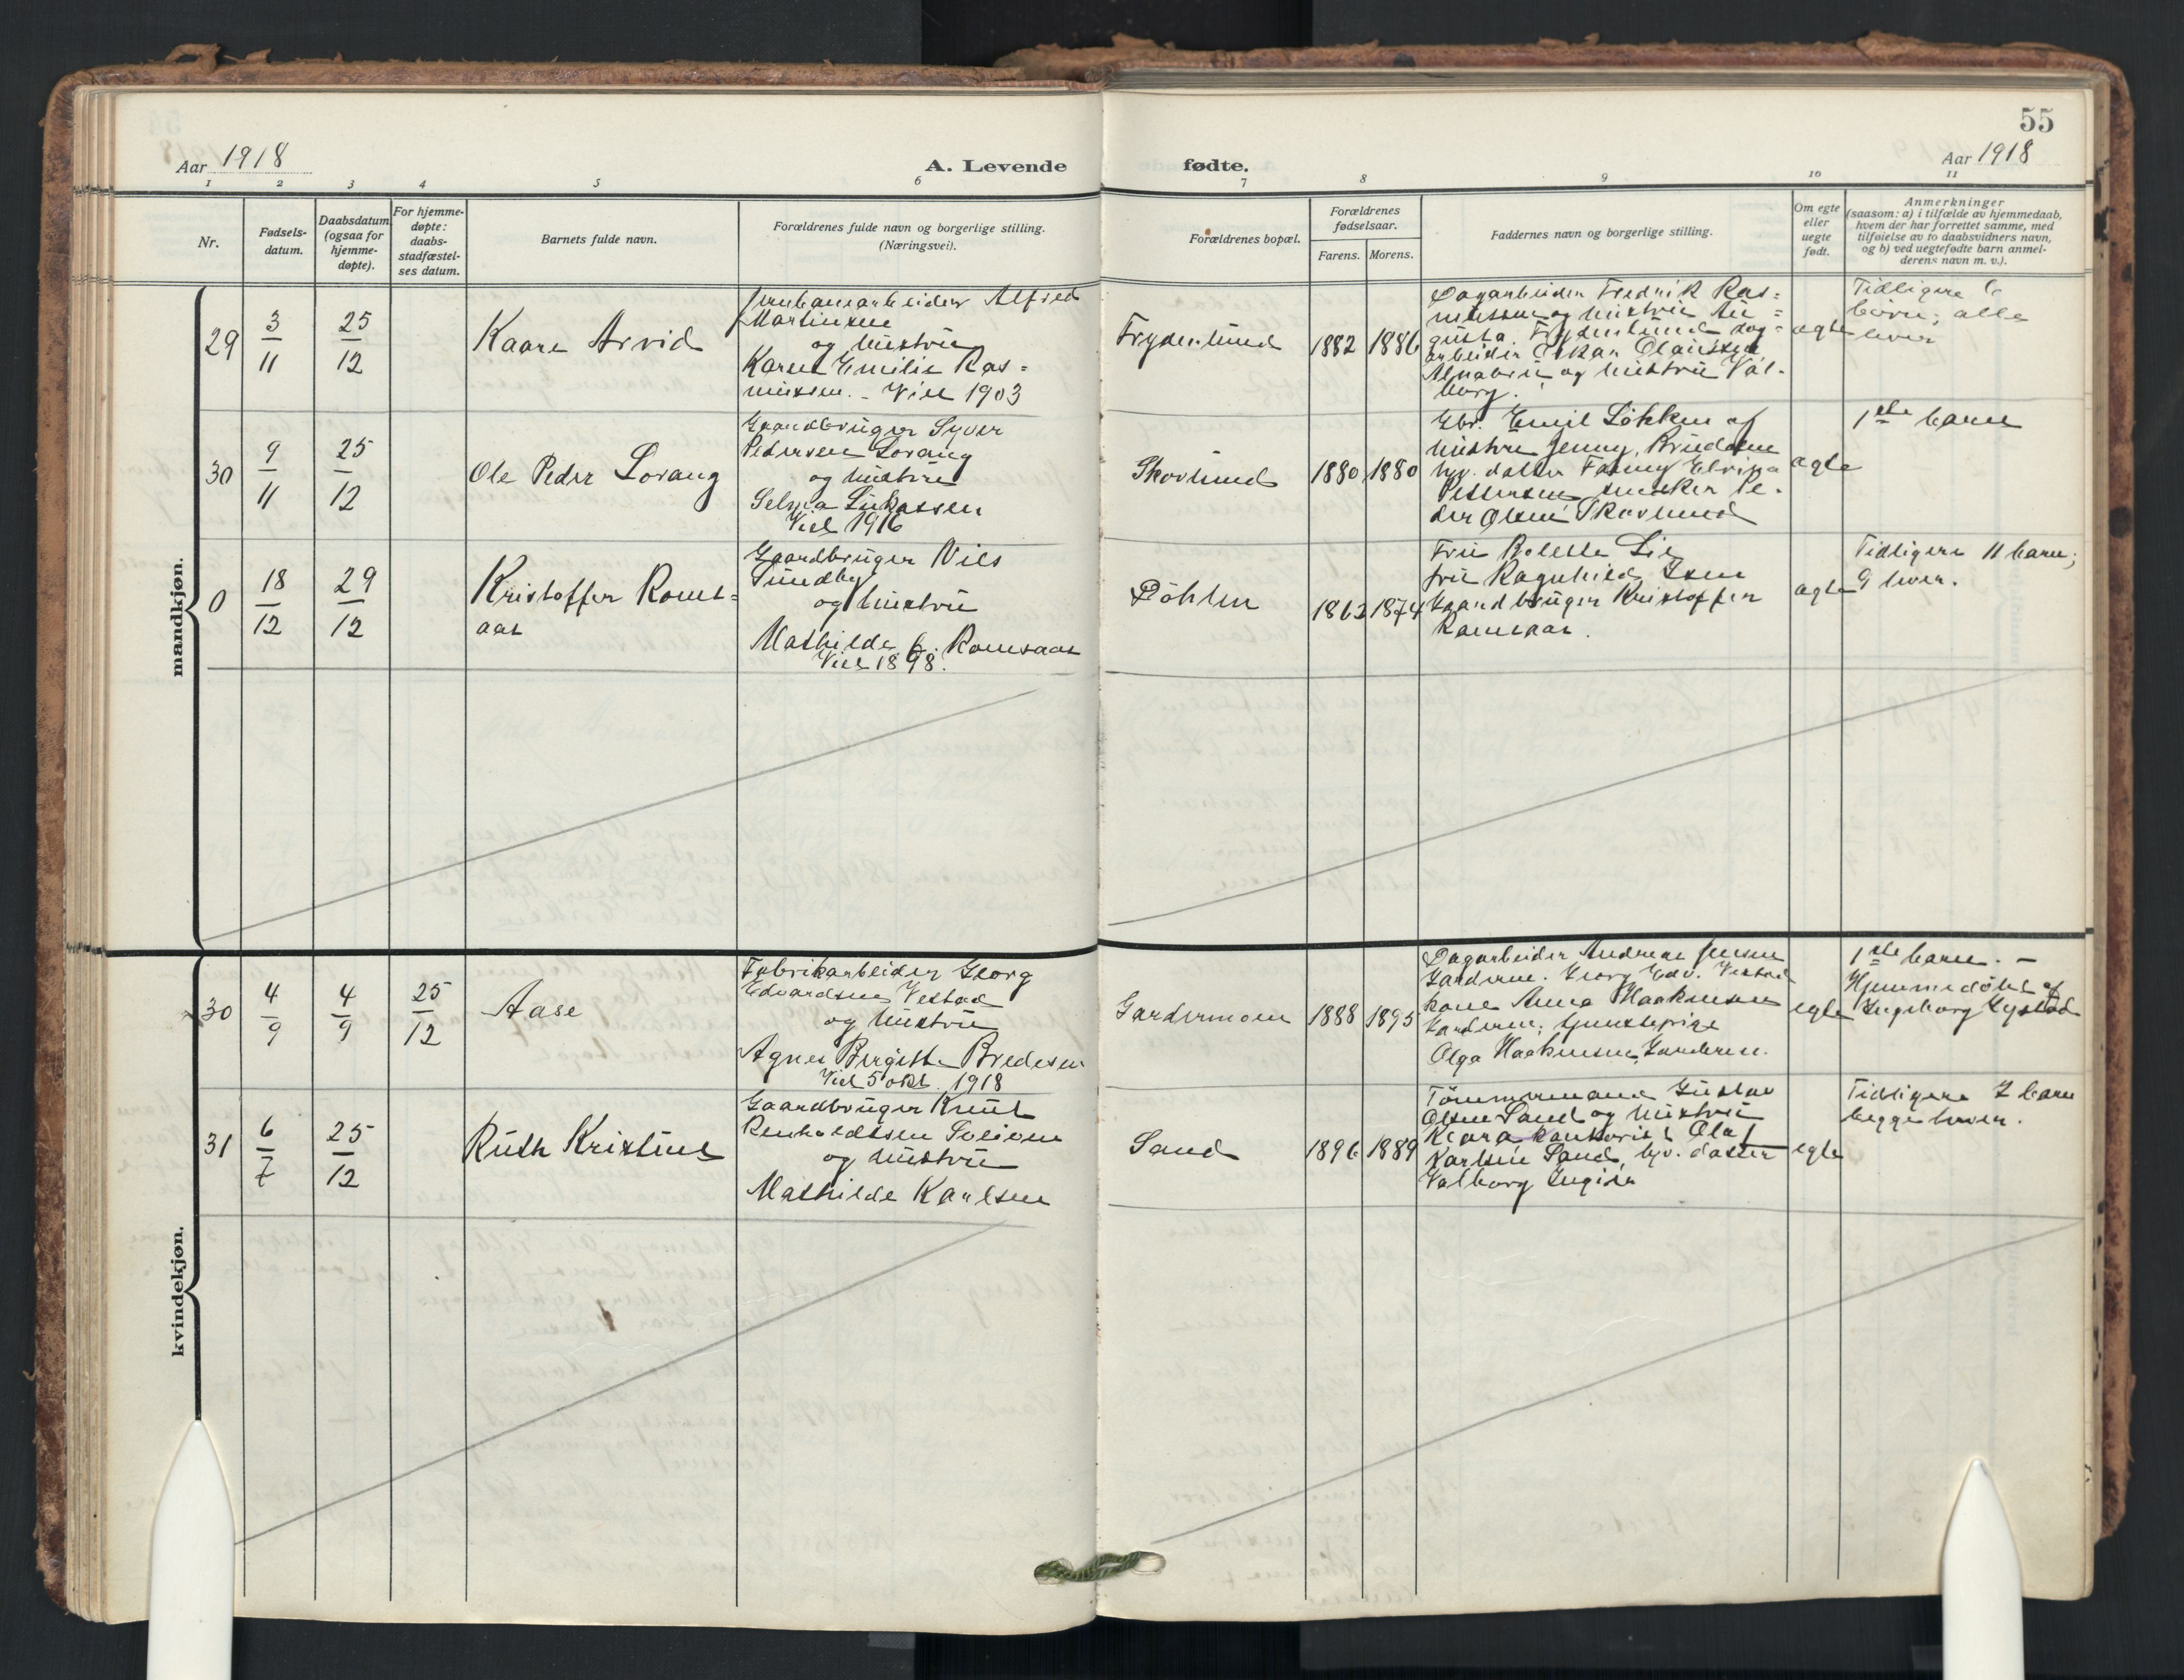 55
Aar 1918
A. Levende
fødte.
Aar 1918
1 2 3 4 5 6 7 8 9 10 11
Nr.
Fødsels-
datum.
Daabsdatum
(ogsaa for
hjemme-
døpte).
For hjemme-
døpte:
daabs-
stadfæstel-
ses datum.
Barnets fulde navn.
Forældrenes fulde navn og borgerlige stilling.
(Næringsvei).
Forældrenes bopæl.
Forældrenes
fødselsaar.
Farens. Morens.
Faddernes navn og borgerlige stilling.
Om egte
eller
uegte
født.
Anmerkninger
(saasom: a) i tilfælde av hjemmedaab,
hvem der har forrettet samme, med
tilføielse av to daabsvidners navn,
og b) ved uegtefødte barn anmel-
derens navn m. v.).
mandkjøn.
29
3
11
25
12
Kaare Arvid
Jernbanearbeider Alfred
Martinsen
og hustru
Karen Emilie Ras=
mussen. - Viet 1903
Frydenlund
1882 1886
Dagarbeider Fredrik Ras=
mussen og hustru Au=
gusta, Frydenlund dag=
arbeider Oskar Olaussen
Alnabru og hustru Val-
borg.
egte
Tidligere 6
børn; alle
lever
30
9
11
25
12
Ole Peder Lorang
Gaardbruger Syver
Pedersen Lorang
og hustru
Selma Lukassen
Viet 1916
Skovlund
1880 1880
Gbr. Emil Løkken og
hustru Jenny,
hjv. datter Fanny
Pettersen, snekker Pe-
der Olsen Skovlund
egte
1ste barn
0
18
12
29
12
Kristoffer Roms=
aas
Gaardbruger Nils
Sundby
og hustru
Mathilde K. Romsaas
Viet 1898.
Døhlen
1863 1874
Fru Bolette Lie
fru Ragnhild
Gaardbruger Kristoffer
Romsaas.
egte
Tidligere 11 barn;
9 lever.
kvindekjøn.
30
4
9
4
9
25
12
Aase
Fabrikarbeider Georg
Edvardsen Vestad
og hustru
Agnes Birgitte Bredesen
Viet 5 okt. 1918
Gardermoen
1888 1895
Dagarbeider Andreas Jensen
Garderen. Georg Edv. Vestad
kone Anna Haakensen
Garderen, tjenestepige
Olga Haakensen, Garderen.
egte
1ste barn. -
Hjemmedøbt af
Ingeborg Nystad
31
6
7
25
12
Ruth Kristine
Gaardbruger Knut
Renholdtsen
og hustru
Mathilde Karlsen
Sand
1896 1889
Tømmermand Gustav
Olsen Sand og hustru
Klara, kontorist Olaf
Karlsen Sand, hjv. datter
Valborg
egte
Tidligere 2 barn
begge lever.